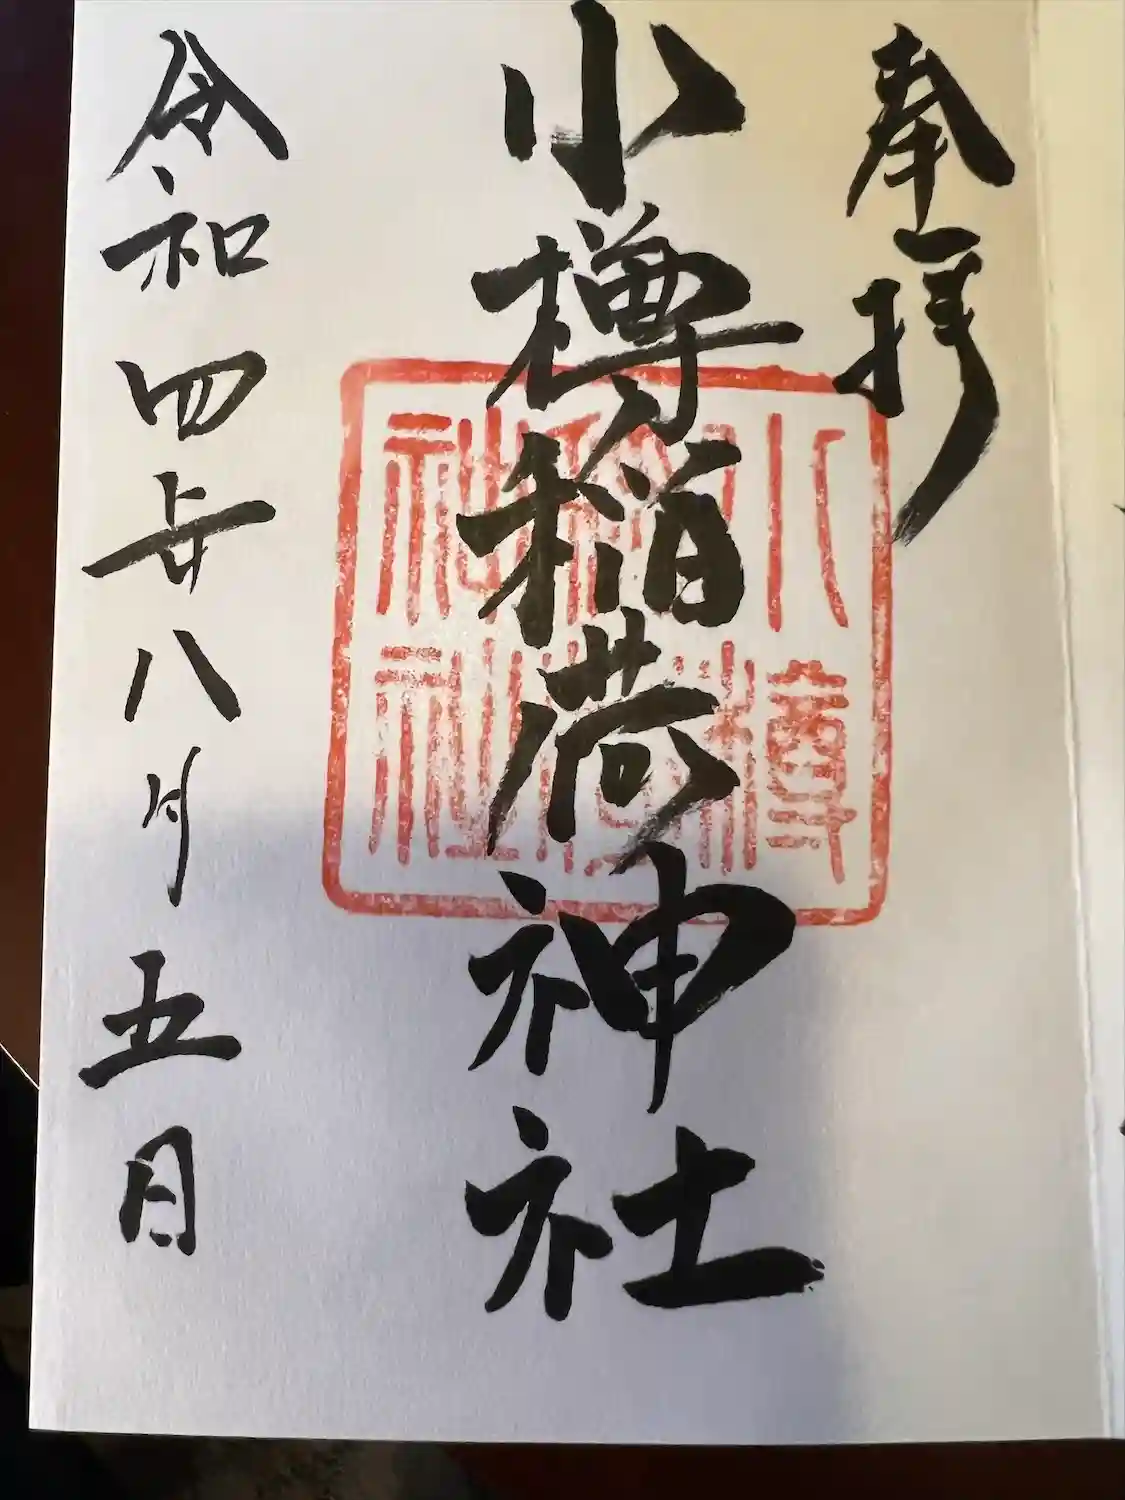 奉拝
小樽稲荷神社
小樽
稲荷
神社
令和四年八月五日